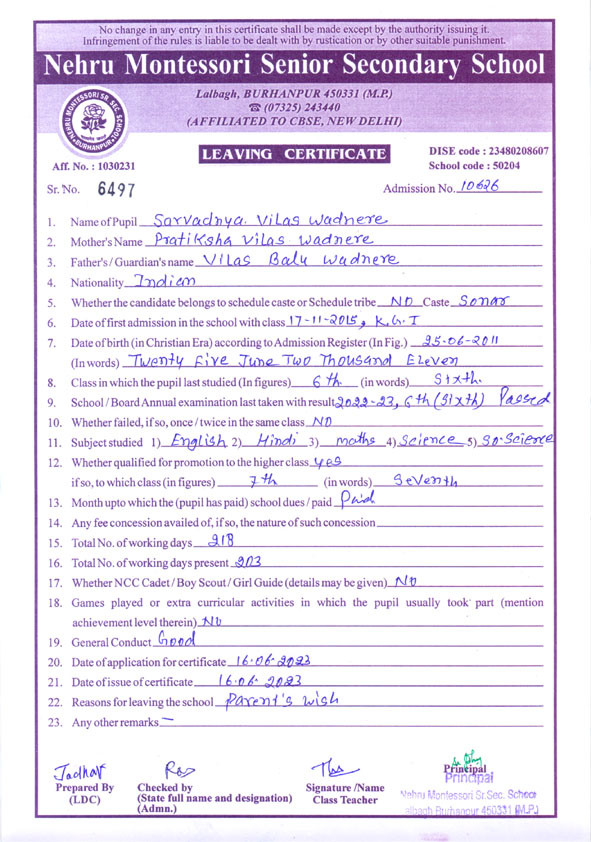 No change in any entry in this certificate shall be made except by the authority issuing it.
Infringement of the rules is liable to be dealt with by rustication or by other suitable punishment.
Nehru Montessori Senior Secondary School
Lalbagh, BURHANPUR 450331 (M.P.)
☎ (07325) 243440
(AFFILIATED TO CBSE, NEW DELHI)
NEHRU MONTESSORI SR. SEC. SCHOOL
BURHANPUR
Aff. No. : 1030231
LEAVING CERTIFICATE
DISE code : 23480208607
School code : 50204
Sr. No. 6497
Admission No. 10626
1. Name of Pupil Sarvadnya Vilas Wadnere
2. Mother's Name Pratiksha Vilas Wadnere
3. Father's / Guardian's name Vilas Balu Wadnere
4. Nationality Indian
5. Whether the candidate belongs to schedule caste or Schedule tribe NO Caste Sonar
6. Date of first admission in the school with class 17-11-2015, K.G.I
7. Date of birth (in Christian Era) according to Admission Register (In Fig.) 25-06-2011
(In words) Twenty Five June Two Thousand Eleven
8. Class in which the pupil last studied (In figures) 6th (in words) Sixth.
9. School / Board Annual examination last taken with result 2022-23, 6th (Sixth) Passed
10. Whether failed, if so, once / twice in the same class NO
11. Subject studied 1) English 2) Hindi 3) maths 4) Science 5) So. Science
12. Whether qualified for promotion to the higher class yes
if so, to which class (in figures) 7th (in words) Seventh
13. Month upto which the (pupil has paid) school dues / paid Paid
14. Any fee concession availed of, if so, the nature of such concession
15. Total No. of working days 218
16. Total No. of working days present 203
17. Whether NCC Cadet / Boy Scout / Girl Guide (details may be given) No
18. Games played or extra curricular activities in which the pupil usually took part (mention
achievement level therein) NO
19. General Conduct Good
20. Date of application for certificate 16.06.2023
21. Date of issue of certificate 16.06.2023
22. Reasons for leaving the school Parent's wish
23. Any other remarks —
Jadhav
Prepared By
(LDC)
Checked by
(State full name and designation)
(Admn.)
Signature /Name
Class Teacher
Principal
Principal
Nehru Montessori Sr.Sec. School
Lalbagh Burhanpur 450331 (M.P.)